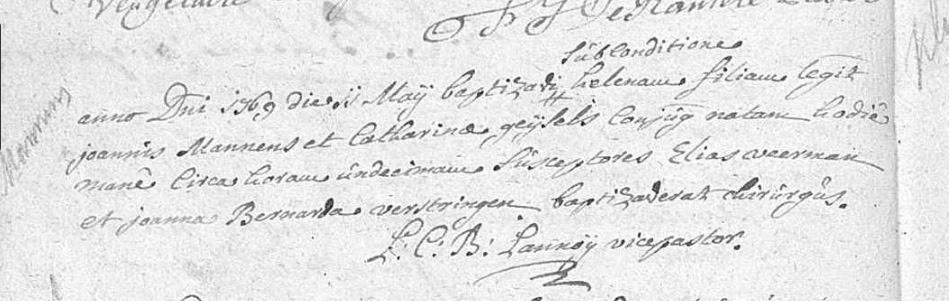 sub conditione
anno Dni 1769 die 11 Maÿ baptizavi helenam filiam legit
joannis Mannens et Catharinæ geÿsels conjug natam hodiè
manè circa horam undecimam susceptores Elias veerman
et joanna Bernarda verstringen baptizaverat chirurgus.
L. C. B. Lannoÿ vicepastor.